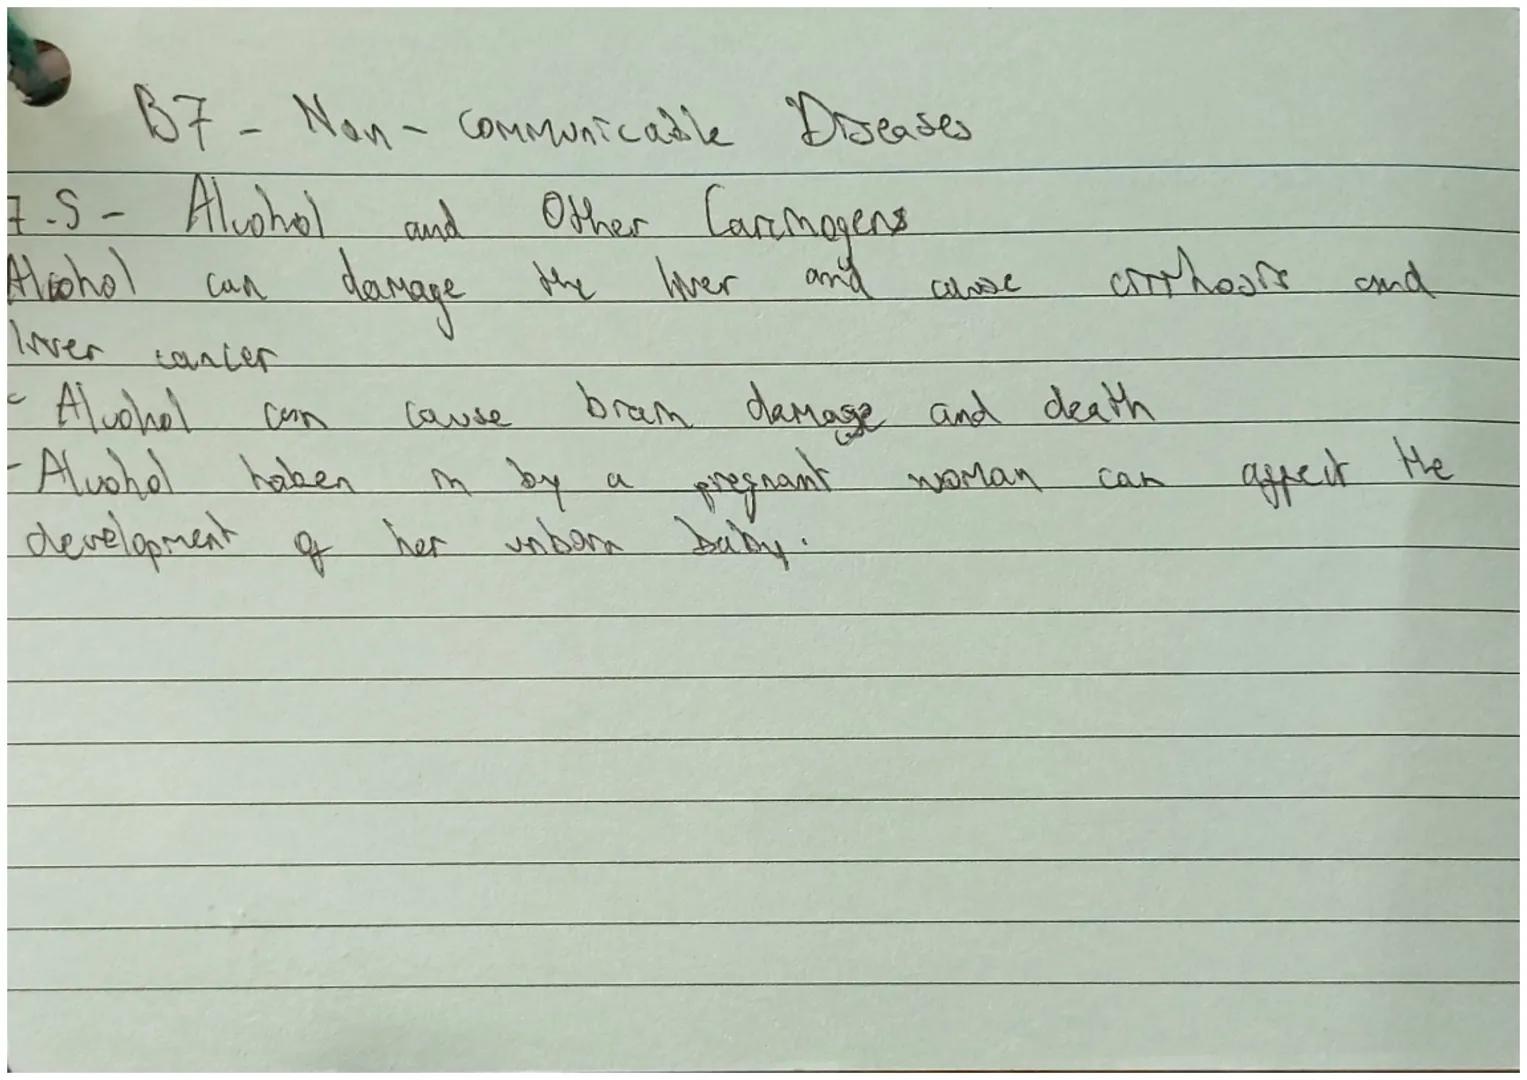 B7 - Non - communicable Diseases
7.5 - Alcohol and Other Carcinogens
Alcohol can damage the liver and cause cirrhosis and
liver cancer
- Alcohol can cause brain damage and death
- Alcohol taken in by a pregnant woman can affect the
development of her unborn baby.